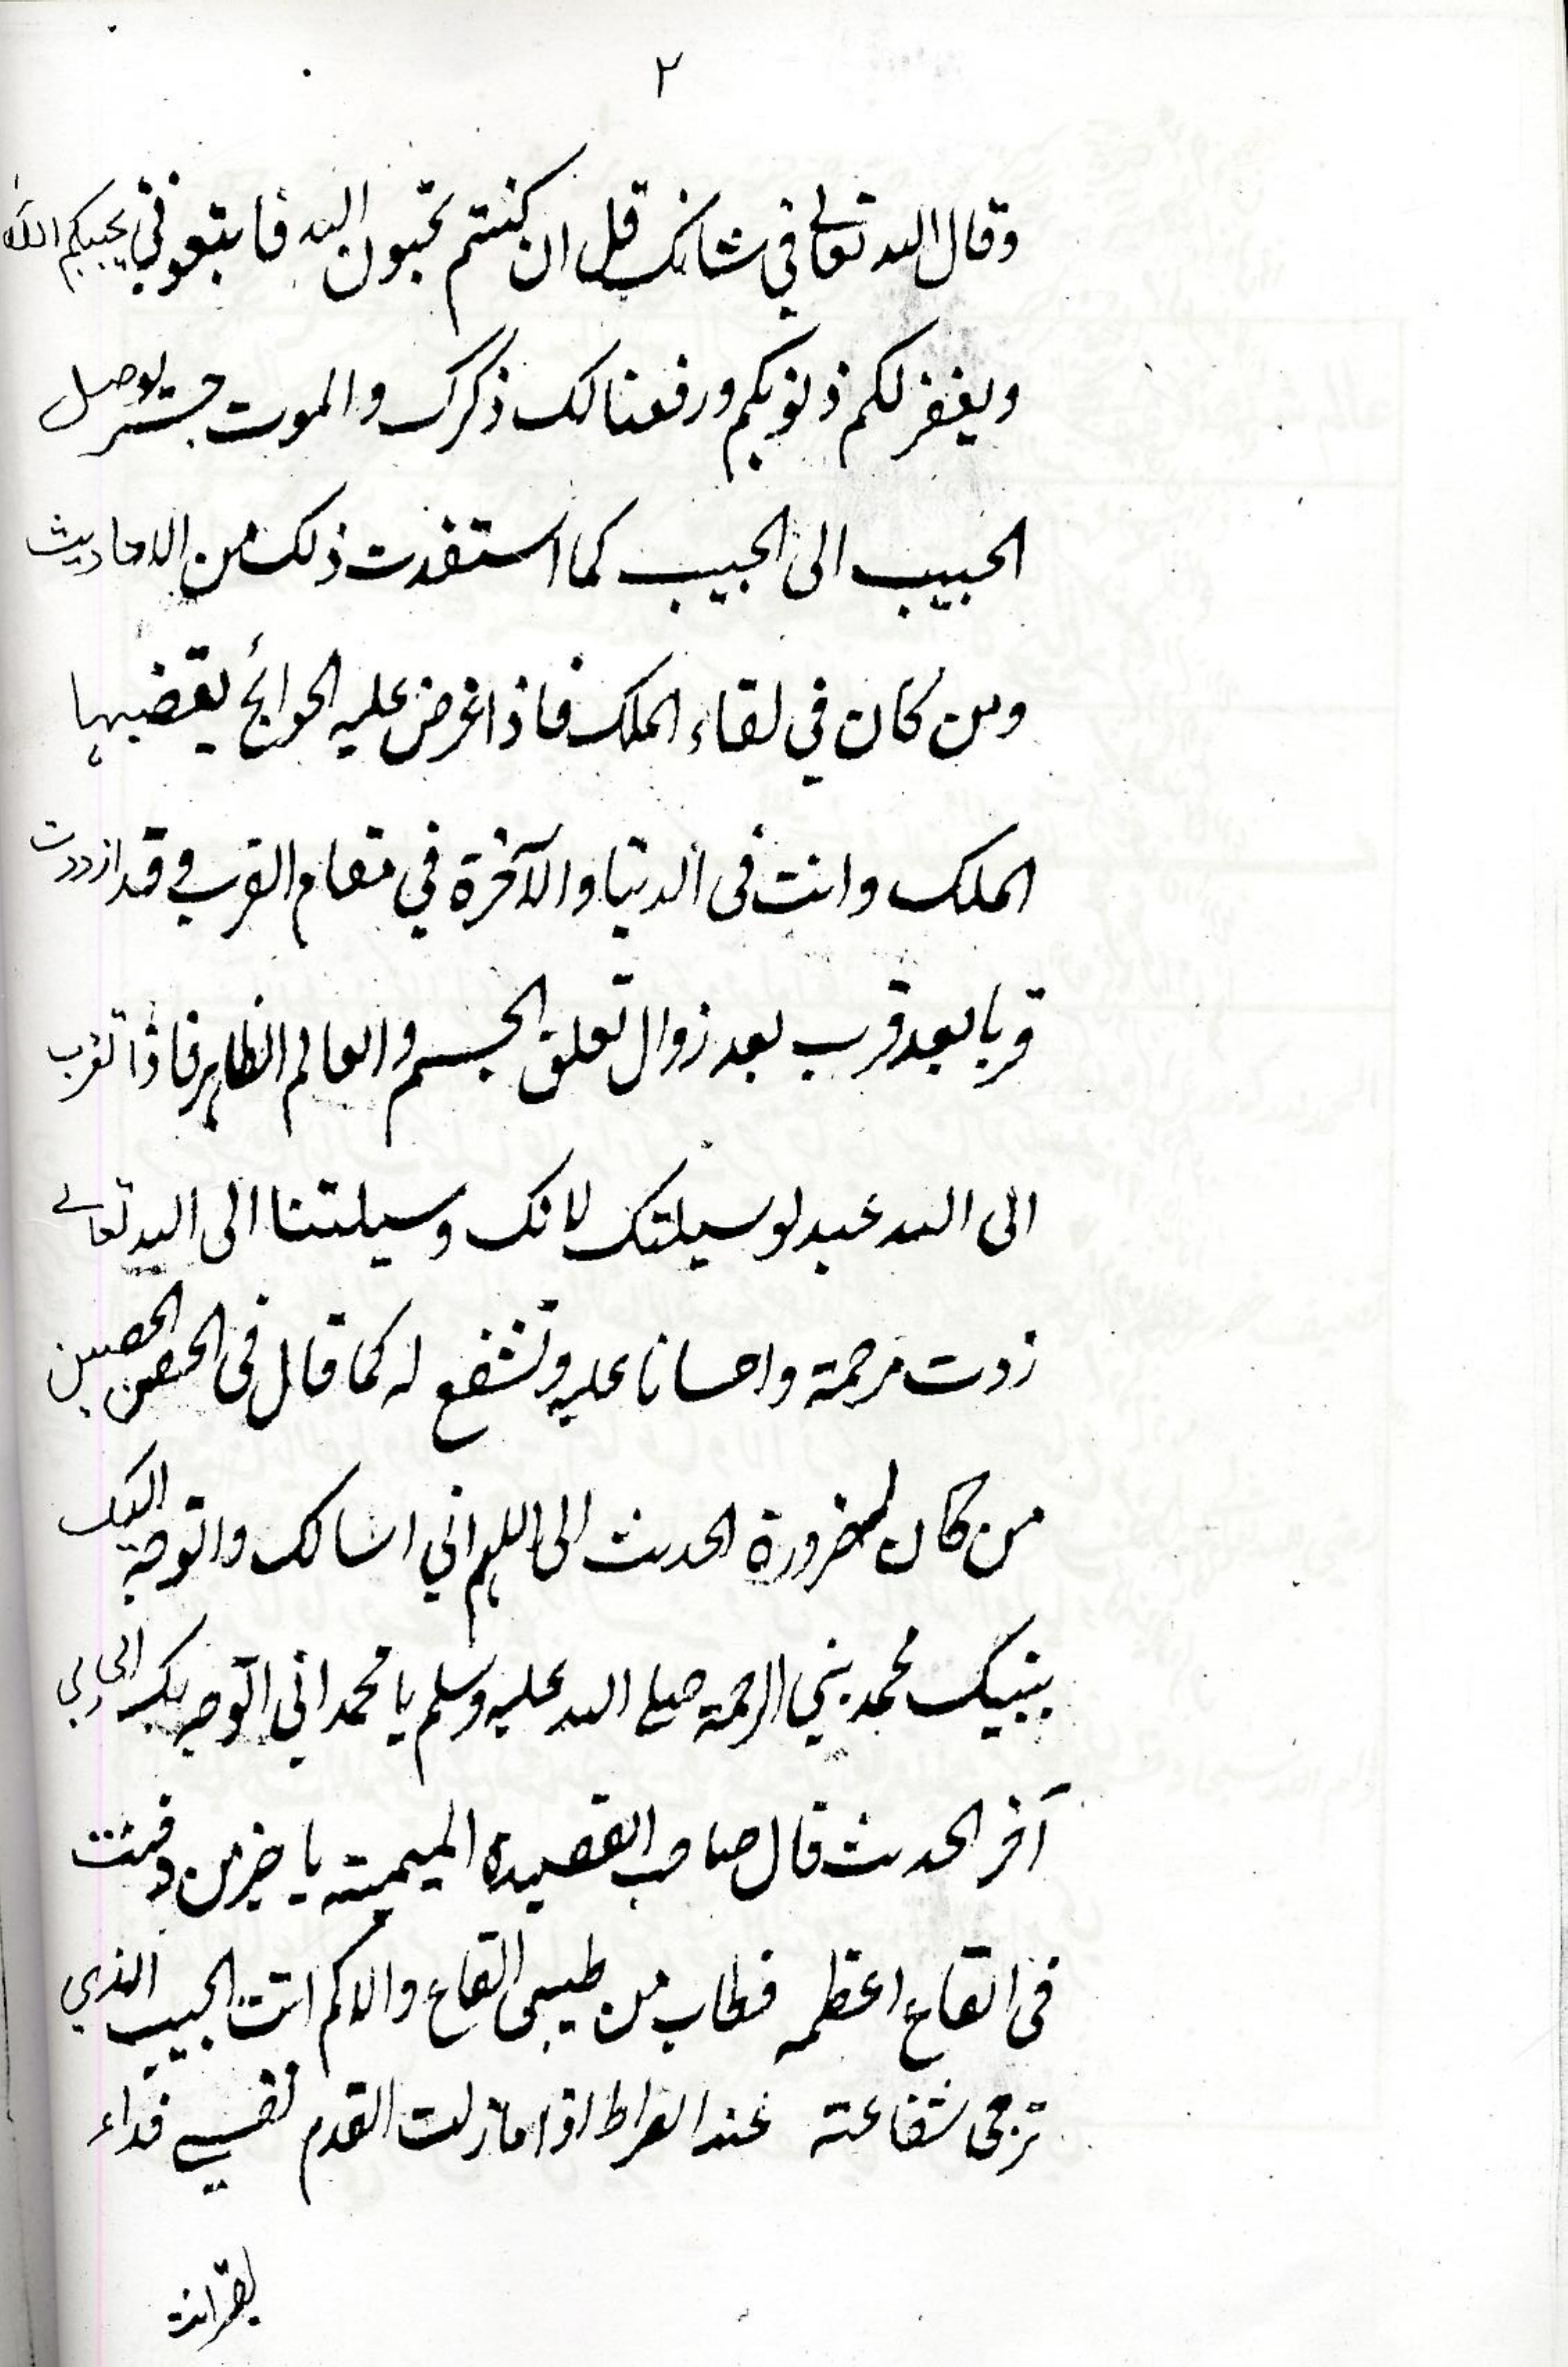 ٢
وقال الله تعالى في شانك قل ان كنتم تحبون الله فاتبعوني يحببكم الله
ويغفر لكم ذنوبكم ورفعنا لك ذكرك والموت جسر يوصل
الحبيب الى الحبيب كما استفدت ذلك من الاحاديث
ومن كان في لقاء الملك فاذا عرض عليه الحوائج يقضيها
الملك وانت فى الدنيا والآخرة في مقام القرب وقد ازددت
قربا بعد قرب بعد زوال تعلق الجسم والعالم الظاهر فاذا تقرب
الى الله عبد لوسيلتك لانك وسيلتنا الى الله تعالے
زدت مرحمة واحسانا عليه وتشفع له كما قال فى الحصن الحصين
من كان له ضرورة الحديث الى اللهم اني اسالك واتوجه اليك
بنبيك محمد نبي الرحمة صلے الله عليه وسلم يا محمد اني اتوجه بك الى ربي
آخر الحديث قال صاحب القصيده الميمية يا خير من دفنت
فى القاع اعظمه فطاب من طيبهى القاع والاكم انت الحبيب الذي
ترجى شفاعته عند الصراط اذا ما زلت القدم نفسي فداء
لقبر انت